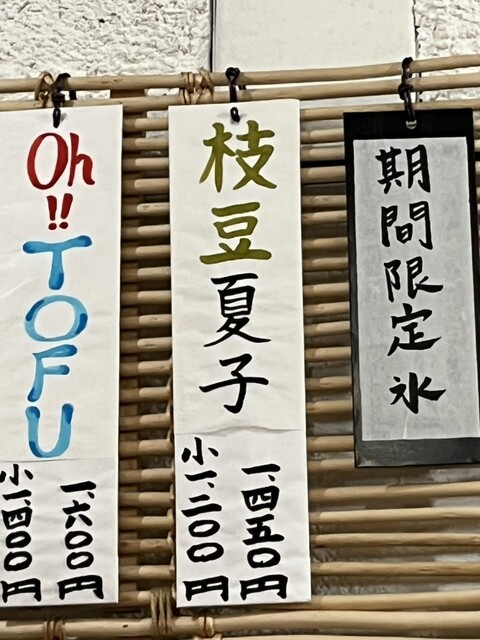 期間限定氷
枝豆夏子
一、四五〇円
小一、二〇〇円
Oh!!
TOFU
一、六〇〇円
小一、四〇〇円